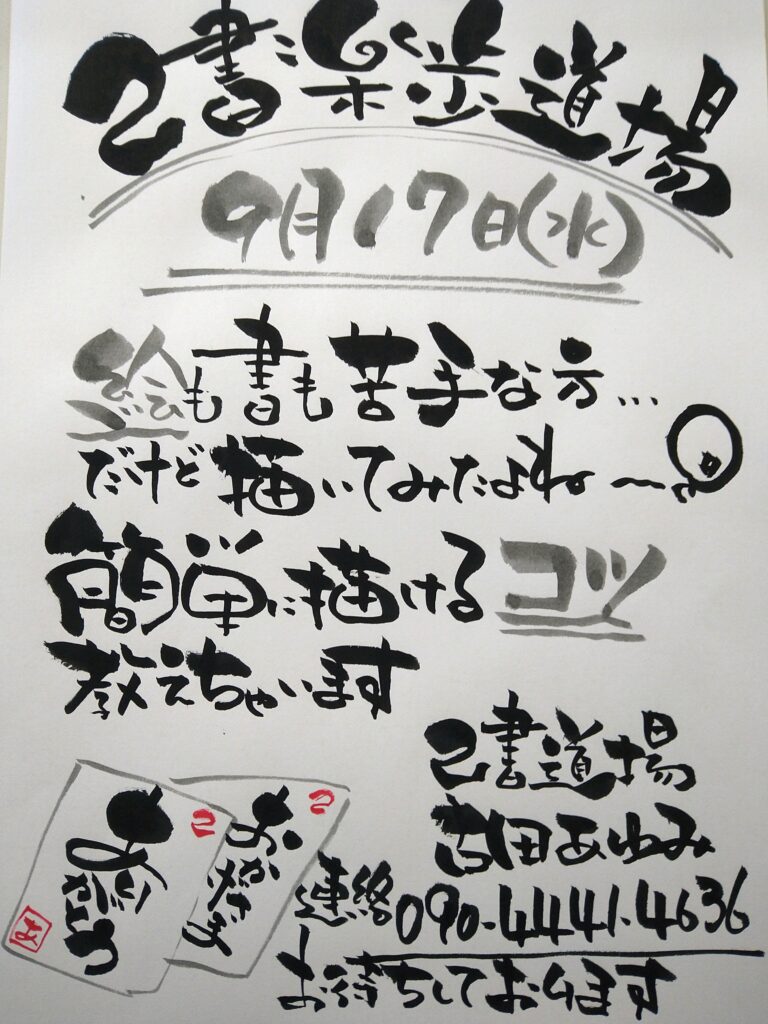 己書こ楽歩道場
9月17日(水)
絵も書も苦手な方…
だけど描いてみたよね〜
簡単に描けるコツ
教えちゃいます
己書道場
吉田あゆみ
連絡090-4441-4636
お待ちしております
ありがとう
あ
おかげさま
己
己